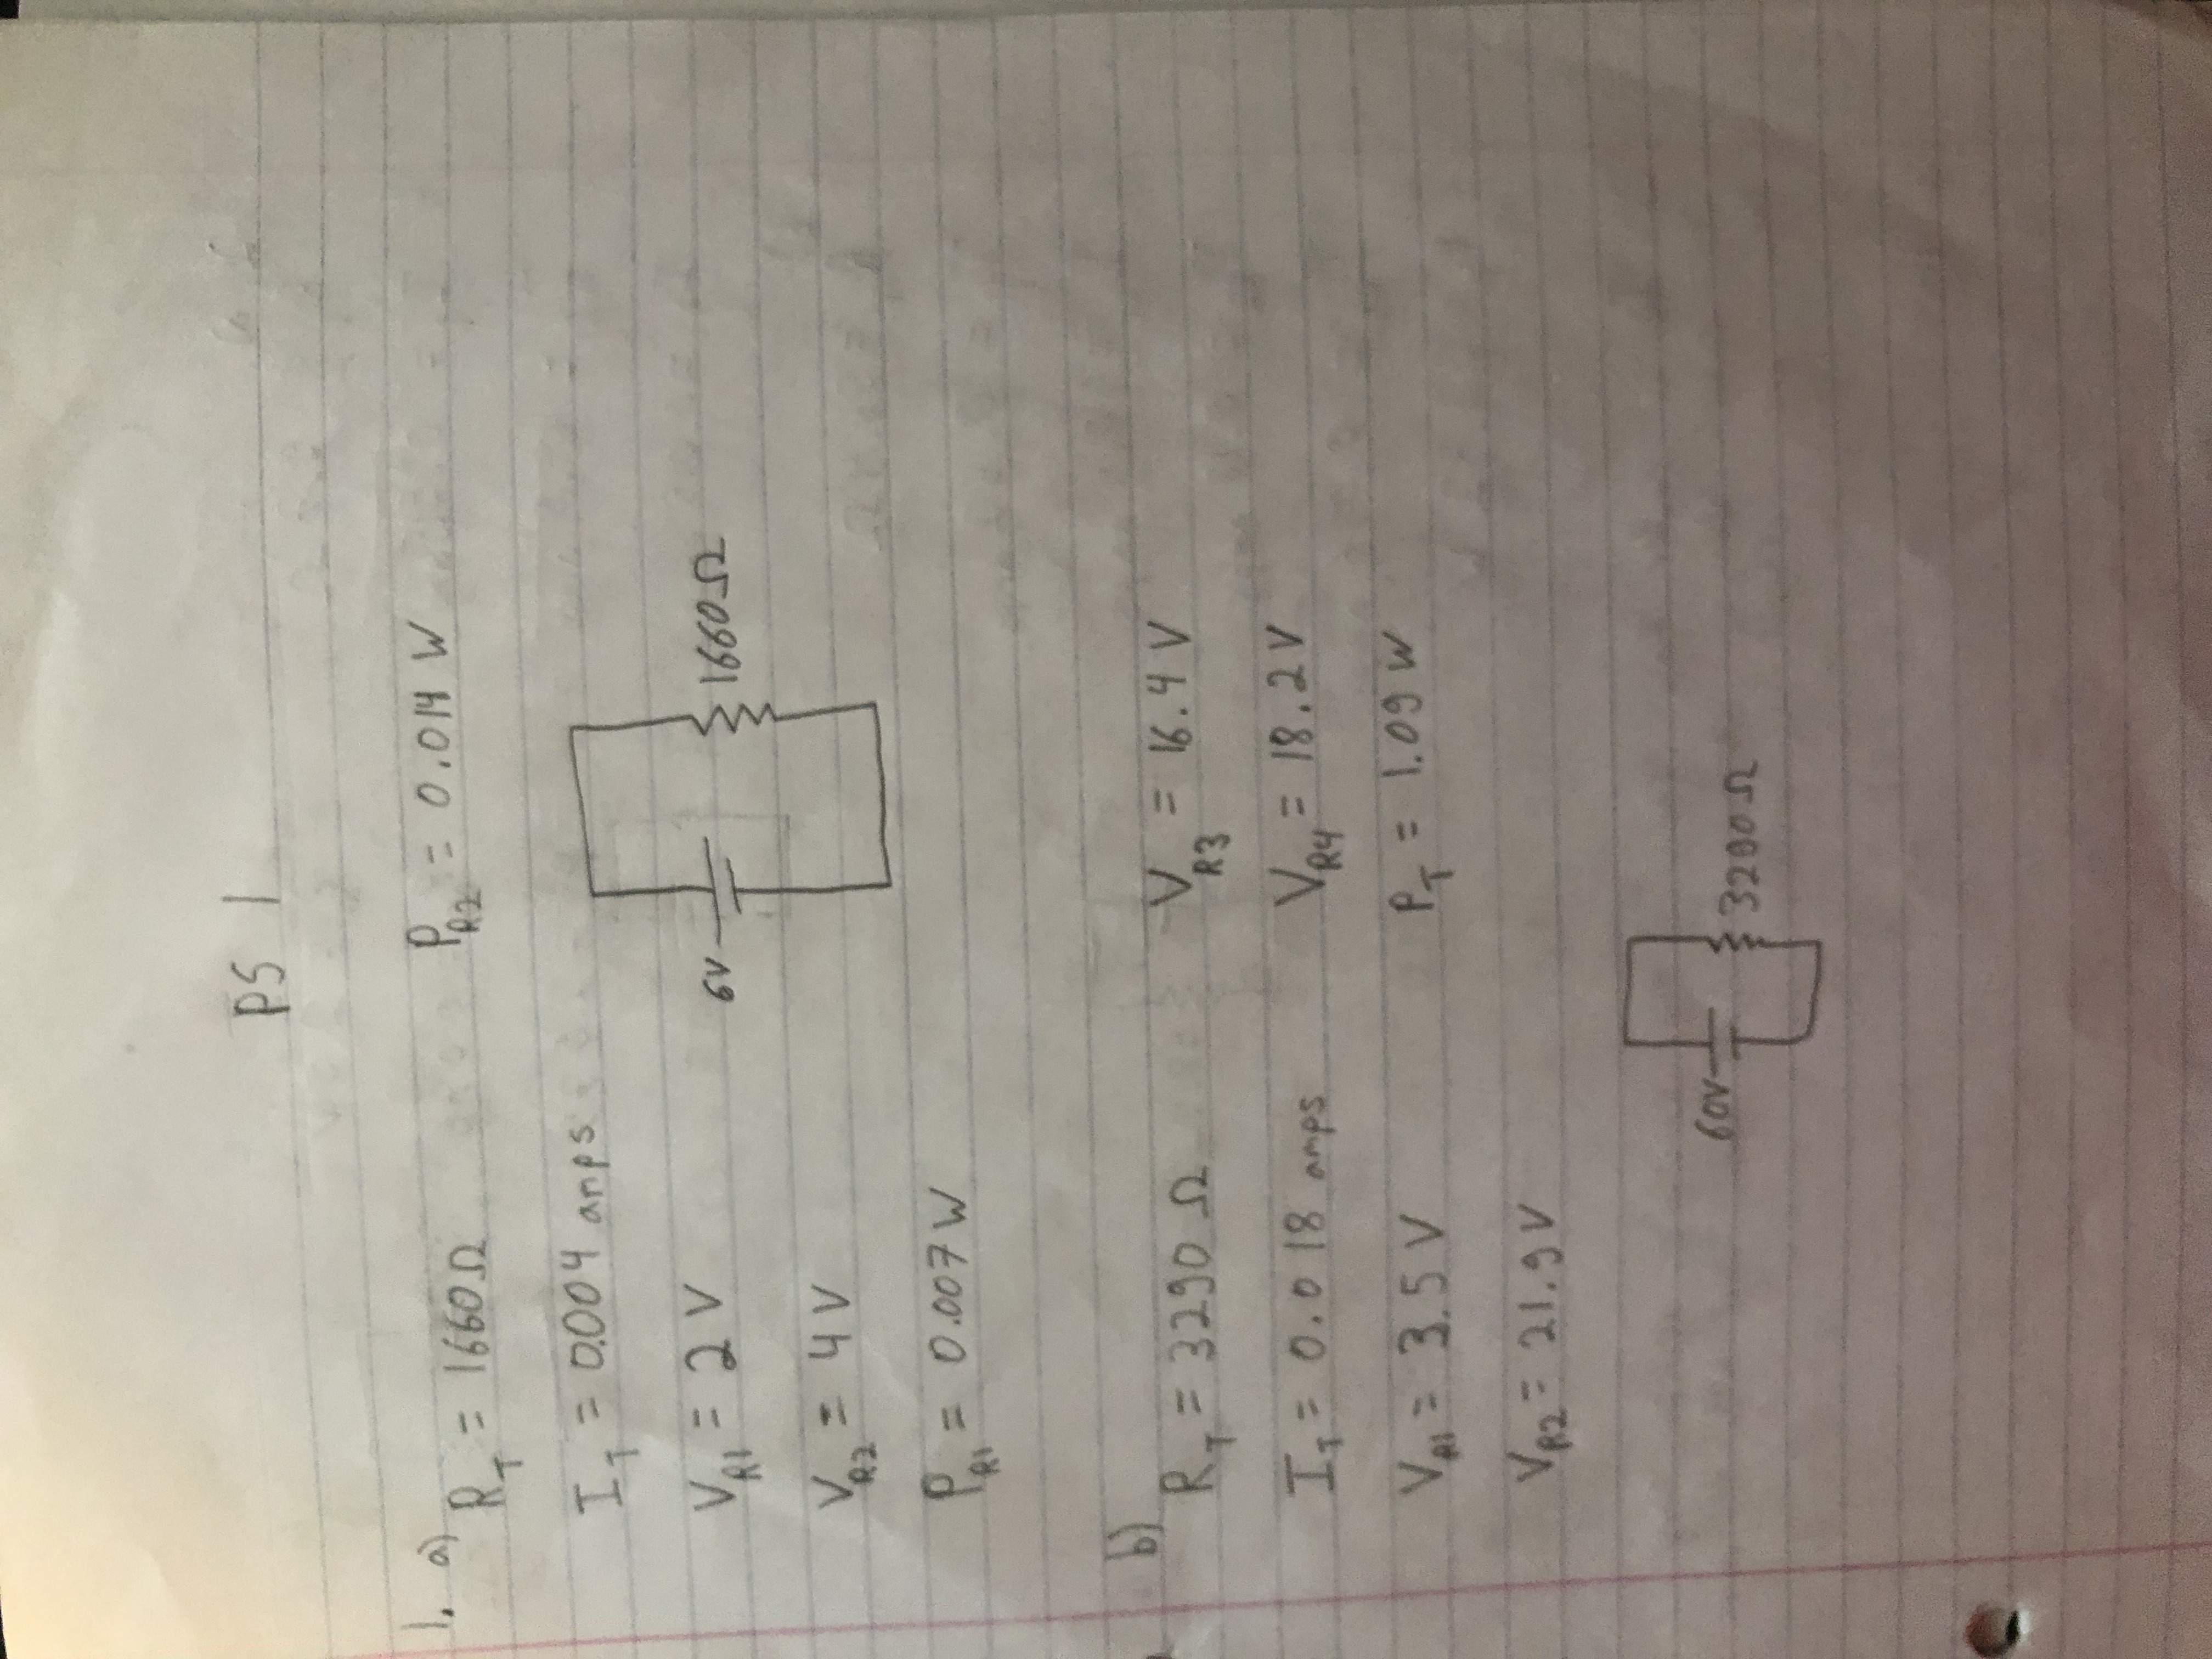 PS 1
1. a)
R_T = 1660Ω
I_T = 0.004 amps
V_R1 = 2 V
V_R2 = 4 V
P_R1 = 0.007 W
P_R2 = 0.014 W
6V
1660Ω
b)
R_T = 3290 Ω
I_T = 0.018 amps
V_R1 = 3.5 V
V_R2 = 21.9 V
V_R3 = 16.4 V
V_R4 = 18.2 V
P_T = 1.09 W
60V
3290 Ω